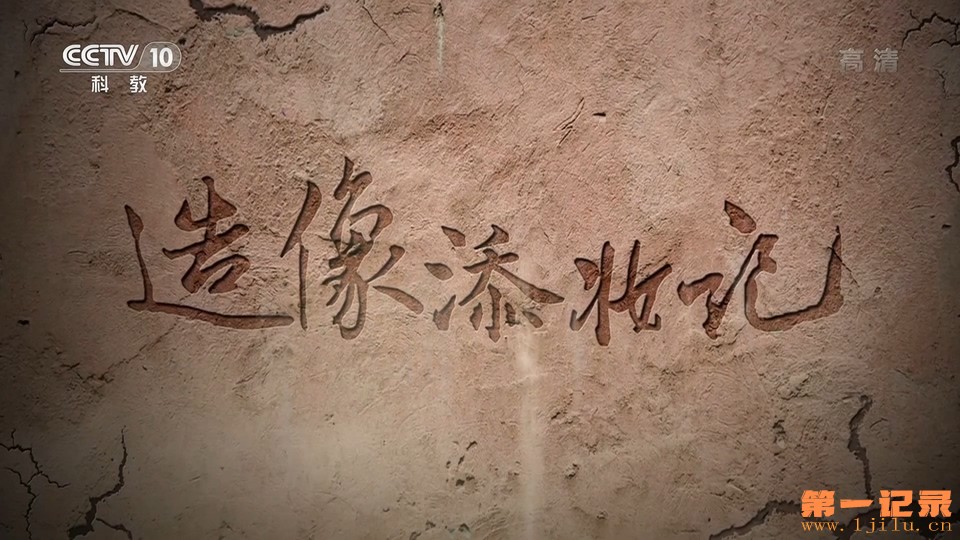 CCTV 10
高清
科教
造像添妆记
第一记录
www.1jilu.cn